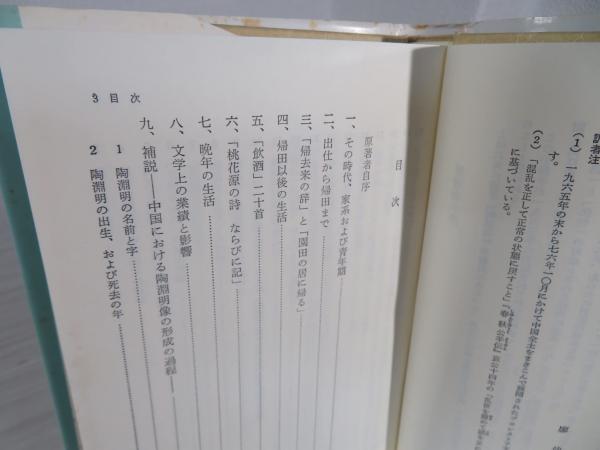 訳者注
(1) 一九六五年の末から七六年一〇月にかけて中国全土をまきこんで展開された
す。
(2) 「混乱を正して正常の状態に戻すこと」『春秋公羊伝』哀公十四年の
に基づいている。
目次
原著者自序
一、その時代、家系および青年期
二、出仕から帰田まで
三、「帰去来の辞」と「園田の居に帰る」
四、帰田以後の生活
五、「飲酒」二十首
六、「桃花源の詩 ならびに記」
七、晩年の生活
八、文学上の業績と影響
九、補説——中国における陶淵明像の形成の過程——
1 陶淵明の名前と字
2 陶淵明の出生、および死去の年
3 目次